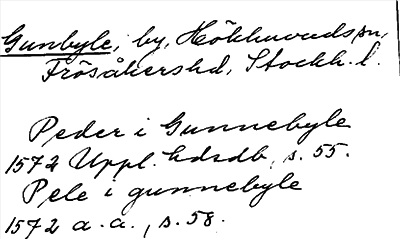 Gunbyle, by, Hökhuvuds sn,
Frösåkers hd, Stockh. l.
Peder i Gunnebyle
1572 Uppl. hdrdb, s. 55.
Pele i gunnebyle
1572 a. a., s. 58.